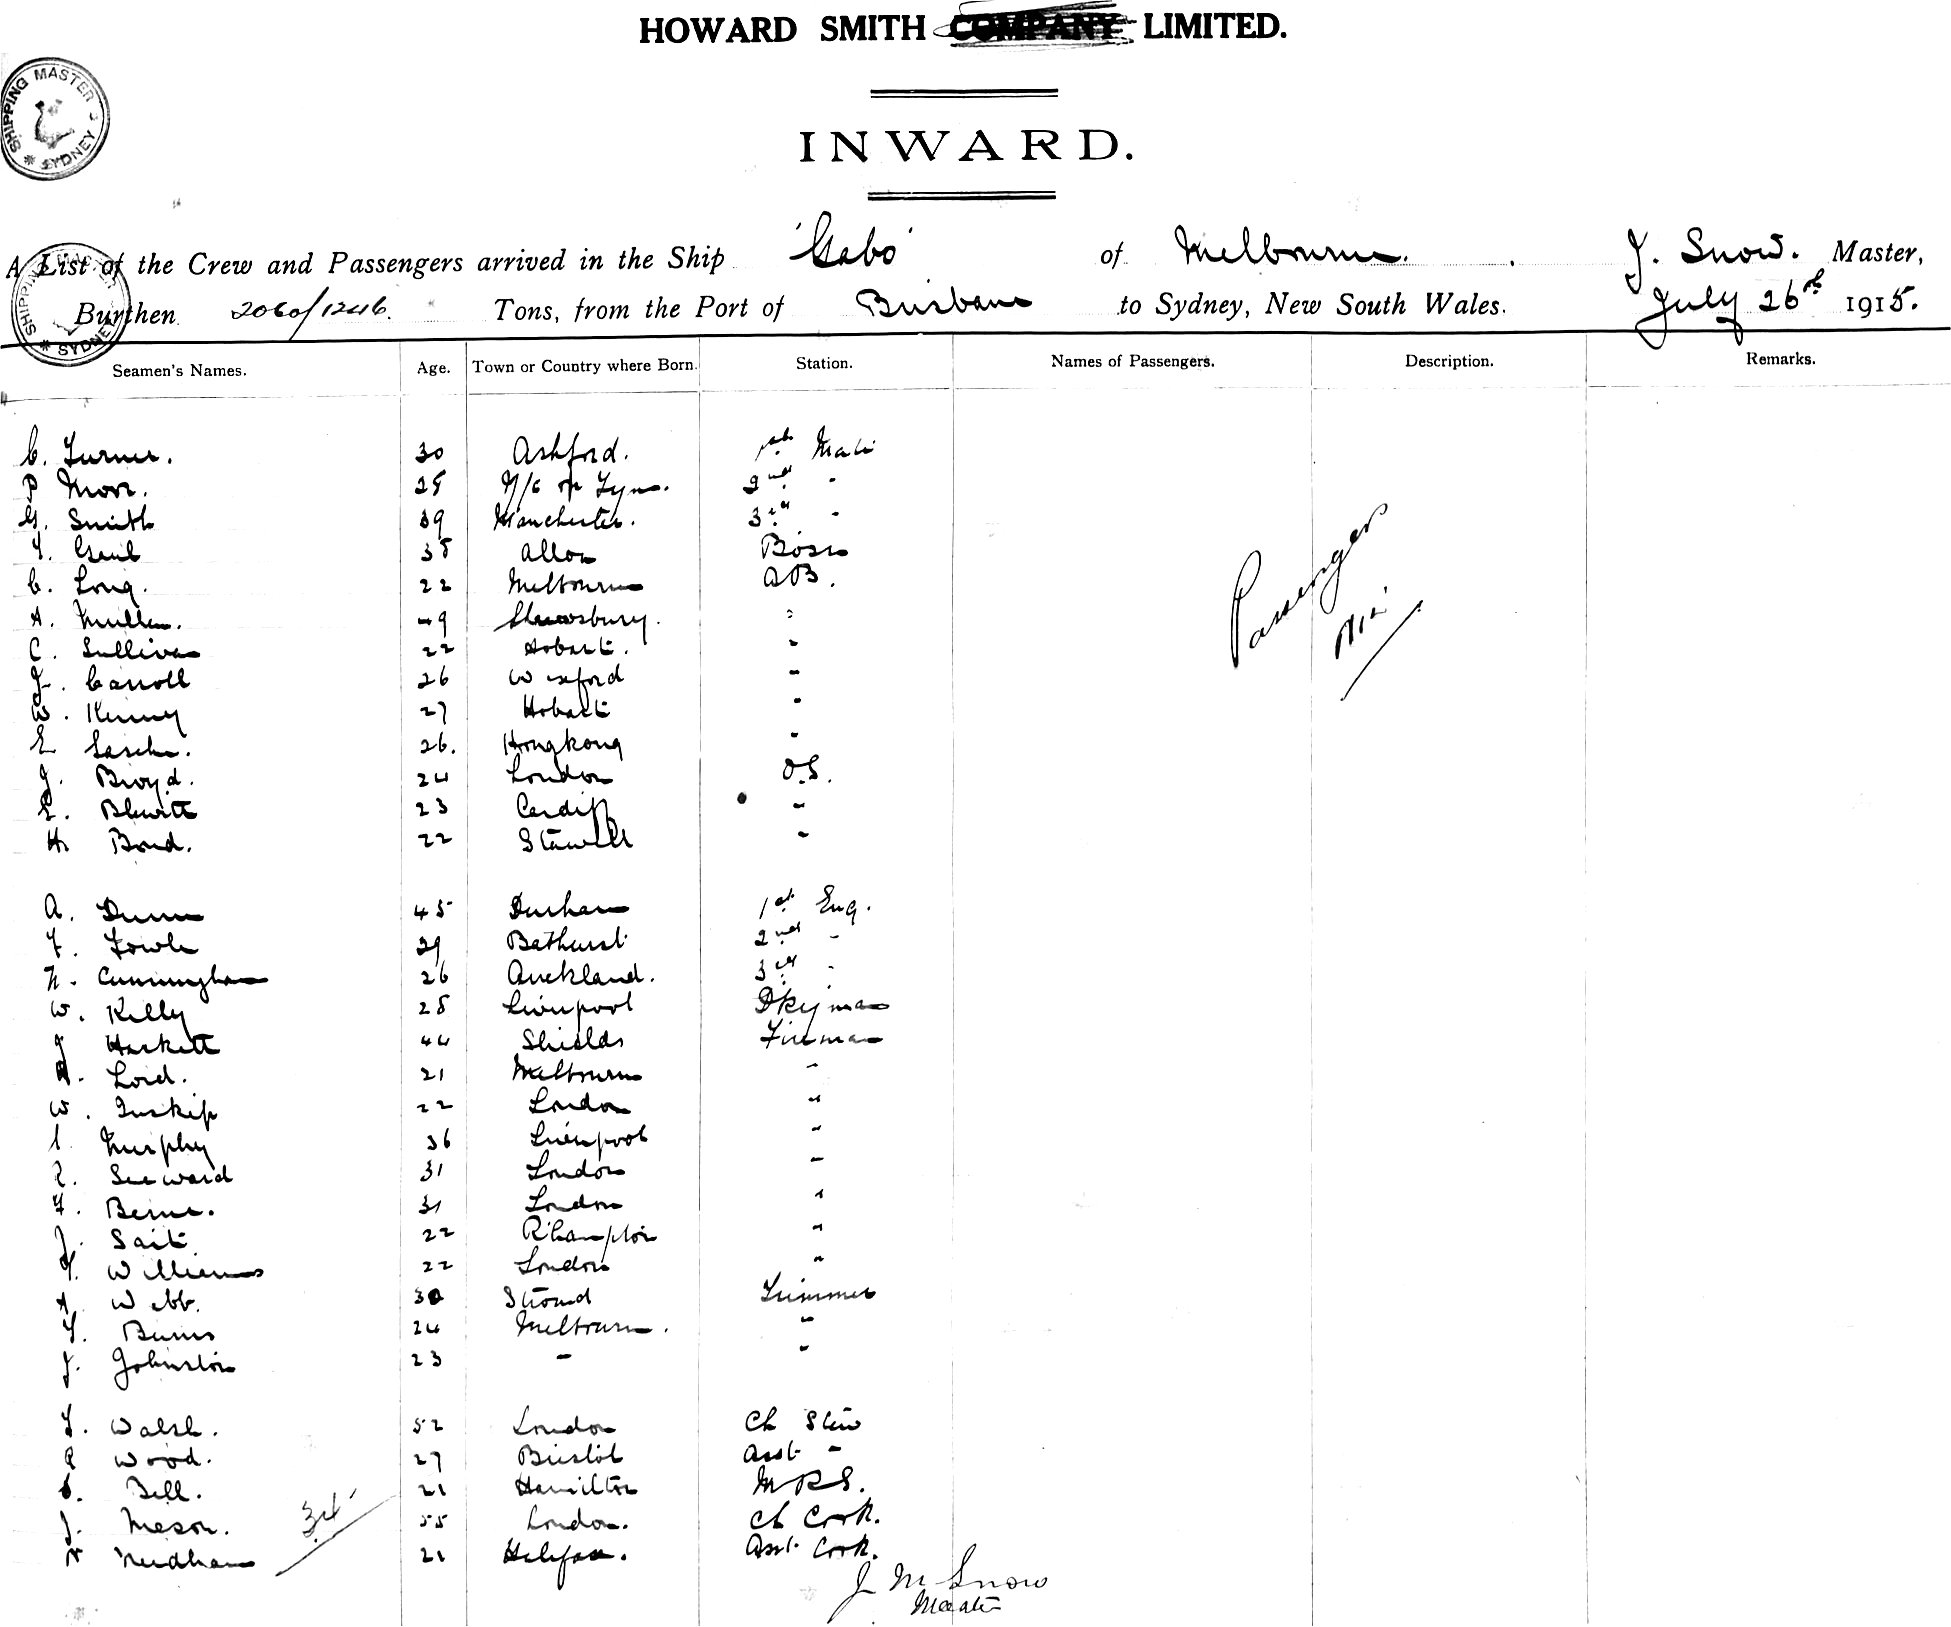 HOWARD SMITH COMPANY LIMITED.
SHIPPING MASTER SYDNEY
INWARD.
A List of the Crew and Passengers arrived in the Ship 'Gabo' of Melbourne. J. Snow. Master,
Burthen 2060/1246. Tons, from the Port of Brisbane to Sydney, New South Wales. July 26th 1915.
SHIPPING SYDNEY
Seamen's Names. Age. Town or Country where Born. Station. Names of Passengers. Description. Remarks.
C. Turner. 30 Ashford. 1st Mate
P 28 N/C on Tyne. 2nd "
G. Smith 39 Manchester. 3rd "
38 Alloa Bosn
C. Long. 22 Melbourne AB.
A. Mullen. 49 Shrewsbury. "
C. Sullivan 22 Hobart. "
J. Carroll 26 Wexford "
W. Kenny 27 Hobart "
E 26. Hongkong "
J. Broyd. 24 London O.S.
E. Blewitt 23 Cardiff "
H. Bond. 22 Stawell "
Passengers
Nil
A. Dunn 45 Durham 1st Eng.
F. Fowle 29 Bathurst 2nd "
N. Cunningham 26 Auckland. 3rd "
W. Kelly 28 Liverpool Dkyman
J Haskett 44 Shields Fireman
A. Lord. 21 Melbourne "
W. Inskip 22 London "
Murphy 36 Liverpool "
R. Seeward 31 London "
F. 31 London "
J. Sait 22 R'hampton "
T. Williams 22 London "
A Webb. 30 Stroud Trimmer
T. Burns 24 Melbourne. "
J. Johnston 23 " "
T. Walsh. 52 London Ch Stew
R Wood. 27 Bristol Asst "
C. Bell. 21 Hamilton MRS.
J. Mason. 55 London. Ch Cook.
N Needham 21 Halifax. Asst. Cook.
34
J M Snow
Master